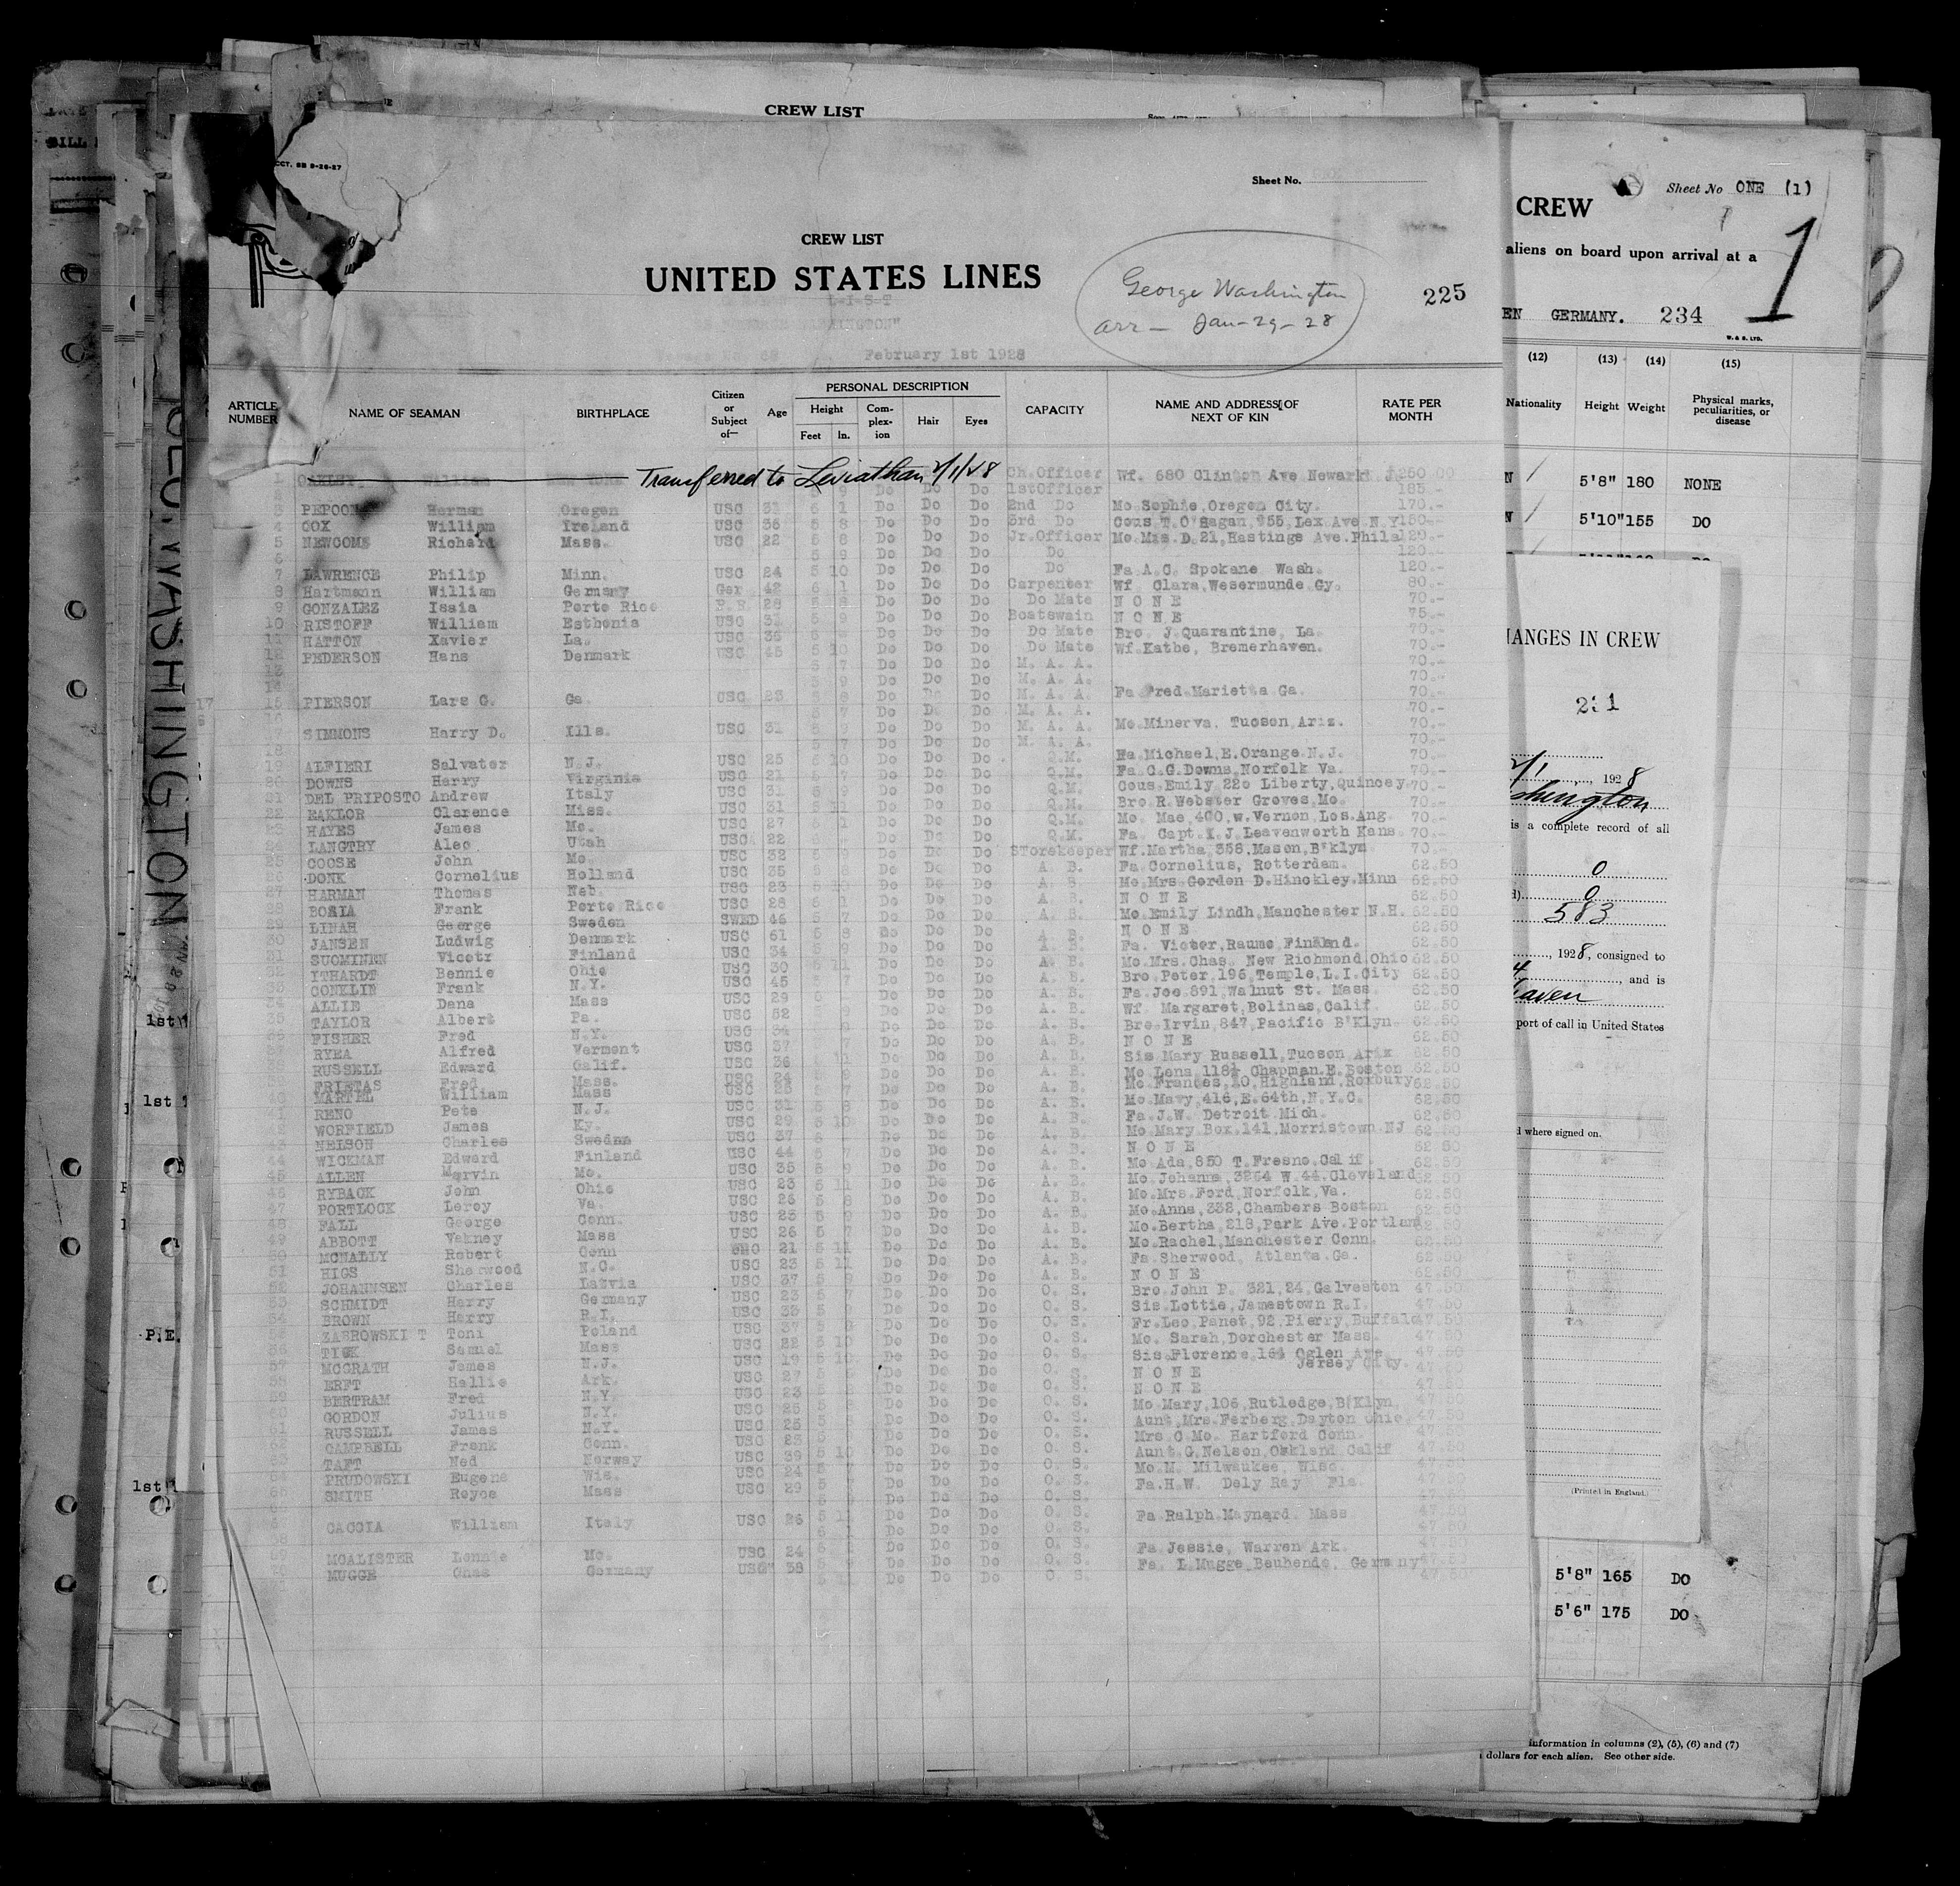 CREW LIST
CCT. SB 9-26-27
Sheet No.
CREW LIST
UNITED STATES LINES
George Washington
arr — Jan-29-28
225
L-I-S-T
February 1st 1928
ARTICLE NUMBER NAME OF SEAMAN BIRTHPLACE Citizen or Subject of— Age PERSONAL DESCRIPTION Height Feet In. Com-plex-ion Hair Eyes CAPACITY NAME AND ADDRESS OF NEXT OF KIN RATE PER MONTH
1 William Transferred to Leviathan 2/1/28 Ch.Officer Wf. 680 Clinton Ave Newark 250.00
Do Do Do 1stOfficer 185.-
3 Herman Oregon USC 31 6 1 Do Do Do 2nd Do Mo Sophie, Oregon City. 170.-
4 COX William Ireland USC 36 5 8 Do Do Do 3rd Do Cous T. O'Hagan, 955, Lex Ave N.Y. 150.-
5 NEWCOMB Richard Mass. USC 22 5 8 Do Do Do Jr.Officer Mo Mrs D. 21, Hastings Ave. Phila 120.-
6 5 9 Do Do Do Do 120.-
7 LAWRENCE Philip Minn. USC 24 5 10 Do Do Do Do Fa A.C. Spokane Wash. 120.-
8 Hartmann William Germany Ger 42 6 1 Do Do Do Carpenter Wf. Clara, Wesermunde Gy. 80.-
9 GONZALEZ Issia Porto Rico P.R. 28 Do Do Do Do Mate N O N E 70.-
10 RISTOFF William Esthonia USC 5 9 Do Do Do Boatswain N O N E 75.-
11 HATTON Xavier La. USC 36 Do Do Do Do Mate Bro. J. Quarantine, La. 70.-
12 PEDERSON Hans Denmark USC 45 5 10 Do Do Do Do Mate Wf. Kathe, Bremerhaven. 70.-
13 5 7 Do Do Do M. A. A. 70.-
14 5 9 Do Do Do M. A. A. 70.-
15 PIERSON Lars G. Ga. USC 23 5 8 Do Do Do M. A. A. Fa Fred Marietta Ga. 70.-
16 5 7 Do Do Do M. A. A. 70.-
17 SIMMONS Harry D. Ills. USC 31 5 9 Do Do Do M. A. A. Mo Minerva. Tucson Ariz. 70.-
18 5 7 Do Do Do M. A. A. 70.-
19 ALFIERI Salvator N.J. USC 25 5 10 Do Do Do Q.M. Fa Michael, E. Orange N.J. 70.-
20 DOWNS Harry Virginia USC 21 5 7 Do Do Do Q.M. Fa C.G. Downs, Norfolk Va. 70.-
21 DEL PRIPOSTO Andrew Italy USC 31 Do Do Do Q.M. Cous Emily 220 Liberty, Quincey 70.-
22 Clarence Miss. USC 31 5 11 Do Do Do Q.M. Bro R. Webster Groves, Mo. 70.-
23 HAYES James Mo. USC 27 1 Do Do Do Q.M. Mo. Mae, 400, w. Vernon, Los. Ang. 70.-
24 LANGTRY Alec Utah USC 22 Do Do Do Q.M. Fa. Capt. I.J. Leavenworth Kans 70.-
25 COOSE John Mo. USC 32 Do Do Do STorekeeper Wf. Martha, 358, Mason, B'klyn 70.-
26 DONK Cornelius Holland USC 35 Do Do Do A. B. Fa Cornelius, Rotterdam. 62.50
27 HARMAN Thomas Neb. USC 23 5 10 Do Do Do A. B. Mo Mrs Gordon D. Hinckley. Minn 62.50
28 Frank Porto Rico USC 28 Do Do Do A. B. N O N E 62.50
29 LINAH George Sweden SWED 46 5 7 Do Do Do A. B. Mo Emily Lindh, Manchester N.H. 62.50
30 JANSEN Ludwig Denmark USC 61 5 8 Do Do Do A. B. N O N E 62.50
31 SUOMINEN Vicotr Finland USC 34 5 9 Do Do Do A. B. Fa. Victor, Raumo Finland. 62.50
32 ITHARDT Bennie Ohio USC 30 11 Do Do Do A. B. Mo Mrs. Chas. New Richmond Ohio 62.50
33 CONKLIN Frank N.Y. USC 45 7 Do Do Do A. B. Bro Peter, 196, Temple, L.I. City 62.50
34 ALLIE Dana Mass USC 29 Do Do Do A. B. Fa Joe 891, Walnut St. Mass. 62.50
35 TAYLOR Albert Pa. USC 52 Do Do Do A. B. Wf. Margaret, Bolinas, Calif. 62.50
36 FISHER Fred N.Y. USC 34 Do Do Do A. B. Bro Irvin, 847, Pacific B'Klyn. 62.50
RYEA Alfred Vermont USC 37 Do Do Do A. B. N O N E 62.50
RUSSELL Edward Calif. USC 36 11 Do Do Do A. B. Sis Mary Russell, Tucson Ariz 62.50
FRIETAS Fred Mass. USC 24 Do Do Do A. B. Mo Lena 118½ Chapman. E. Boston 62.50
40 MARTEL William Mass USC 25 5 7 Do Do Do A. B. Mo. Frances, 10, Highland, Roxbury 62.50
41 RENO Pete N.J. USC 31 5 8 Do Do Do A. B. Mo Mary, 416, E. 64th, N.Y.C. 62.50
42 WORFIELD James Ky. USC 29 5 10 Do Do Do A. B. Fa J.W. Detroit Mich. 62.50
43 NELSON Charles Sweden USC 37 Do Do Do A. B. Mo Mary Box. 141, Morristown NJ 62.50
44 WICKMAN Edward Finland USC 44 5 7 Do Do Do A. B. N O N E 62.50
45 ALLEN Marvin Mo. USC 35 5 9 Do Do Do A. B. Mo Ada, 850 T. Fresno. Calif 62.50
46 RYBACK John Ohio USC 23 5 11 Do Do Do A. B. Mo Johanna, 3254 W 44. Cleveland 62.50
47 PORTLOCK Leroy Va. USC 26 5 8 Do Do Do A. B. Mo. Mrs Ford, Norfolk, Va. 62.50
48 FALL George Conn. USC 23 5 9 Do Do Do A. B. Mo. Anna, 332, Chambers Boston 62.50
49 ABBOTT Vakney Mass USC 26 5 7 Do Do Do A. B. Mo. Bertha, 218, Park Ave. Portland
50 MCNALLY Robert Conn USC 21 5 11 Do Do Do A. B. Mo Rachel, Manchester Conn. 62.50
51 HIGS Sherwood N.C. USC 23 5 11 Do Do Do A. B. Fa Sherwood, Atlanta Ga. 62.50
52 JOHANNSEN Charles Latvia USC 37 5 9 Do Do Do A. B. N O N E 62.50
53 SCHMIDT Harry Germany USC 23 5 7 Do Do Do O. S. Bro John P. 321, 24, Galveston 47.50
54 BROWN Harry R.I. USC 35 5 9 Do Do Do O. S. Sis Lottie, Jamestown R.I. 47.50
55 ZABROWSKI T Toni Poland USC 37 5 8 Do Do Do O. S. Fr. Leo, Panet, 92, Pierry, Buffalo 47.50
56 Samuel Mass USC 22 5 10 Do Do Do O. S. Mo. Sarah, Dorchester Mass. 47.50
57 MCGRATH James N.J. USC 19 5 10 Do Do Do O. S. Sis Florence 164 Oglen Ave. Jersey City. 47.50
58 ERFT Hollie Ark. USC 27 Do Do Do O. S. N O N E 47.50
59 BERTRAM Fred N.Y. USC 23 Do Do Do O. S. N O N E 47.50
60 GORDON Julius N.Y. USC 25 Do Do Do O. S. Mo Mary, 105, Rutledge, B'Klyn, 47.50
61 RUSSELL James N.Y. USC 25 Do Do Do O. S. Aunt, Mrs. Ferberg, Dayton Ohio 47.50
62 CAMPBELL Frank Conn. USC Do Do Do O. S. Mrs. C Mo. Hartford Conn. 47.50
63 TAFT Ned Norway USC 39 5 10 Do Do Do O. S. Aunt. G. Nelson, Oakland Calif 47.50
64 PRUDOWSKI Eugene Wis. USC 24 5 7 Do Do Do O. S. Mo. M. Milwaukee, Wisc. 47.50
65 SMITH Royce Mass USC 29 5 7 Do Do Do O. S. Fa. H.W. Dely Ray Fla. 47.50
Do Do Do O. S. 47.50
CACCIA William Italy USC 26 5 11 Do Do Do O. S. Fa Ralph. Maynard. Mass 47.50
Do Do Do O. S. 47.50
69 MCALISTER Lennie Mo. USC 24 Do Do Do O. S. Fa Jessie, Warren Ark. 47.50
MUGGE Chas Germany USC 38 Do Do Do O. S. Fa. L. Mugge, Beuhende, Germany 47.50
GEO. WASHINGTON
1st
1st
P.E.
1st
Sheet No ONE (1)
CREW
1
aliens on board upon arrival at a
EN GERMANY. 234
W. & S. LTD.
(12) (13) (14) (15)
Nationality Height Weight Physical marks, peculiarities, or disease
N 5'8" 180 NONE
N 5'10" 155 DO
HANGES IN CREW
231
2/1, 1928
shington
is a complete record of all
0
0
583
, 1928, consigned to
, and is
haven
port of call in United States
d where signed on.
(Printed in England.)
5'8" 165 DO
5'6" 175 DO
information in columns (2), (5), (6) and (7)
dollars for each alien. See other side.